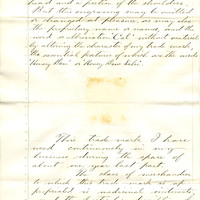 head and a portion of the shoulders.
But this engraving may be omitted
or changed at pleasure, as may also
the prefatory name or names, and the
word or alliteration "Cat" without materially
altering the character of my trade mark,
the essential feature of which are the words
"Honey Bee" or Honey Bee
This trade mark I have
used continuously in my
business during the space of
about one year last past.
The class of merchandise
to which this trade mark is ap-
propriated is medicinal